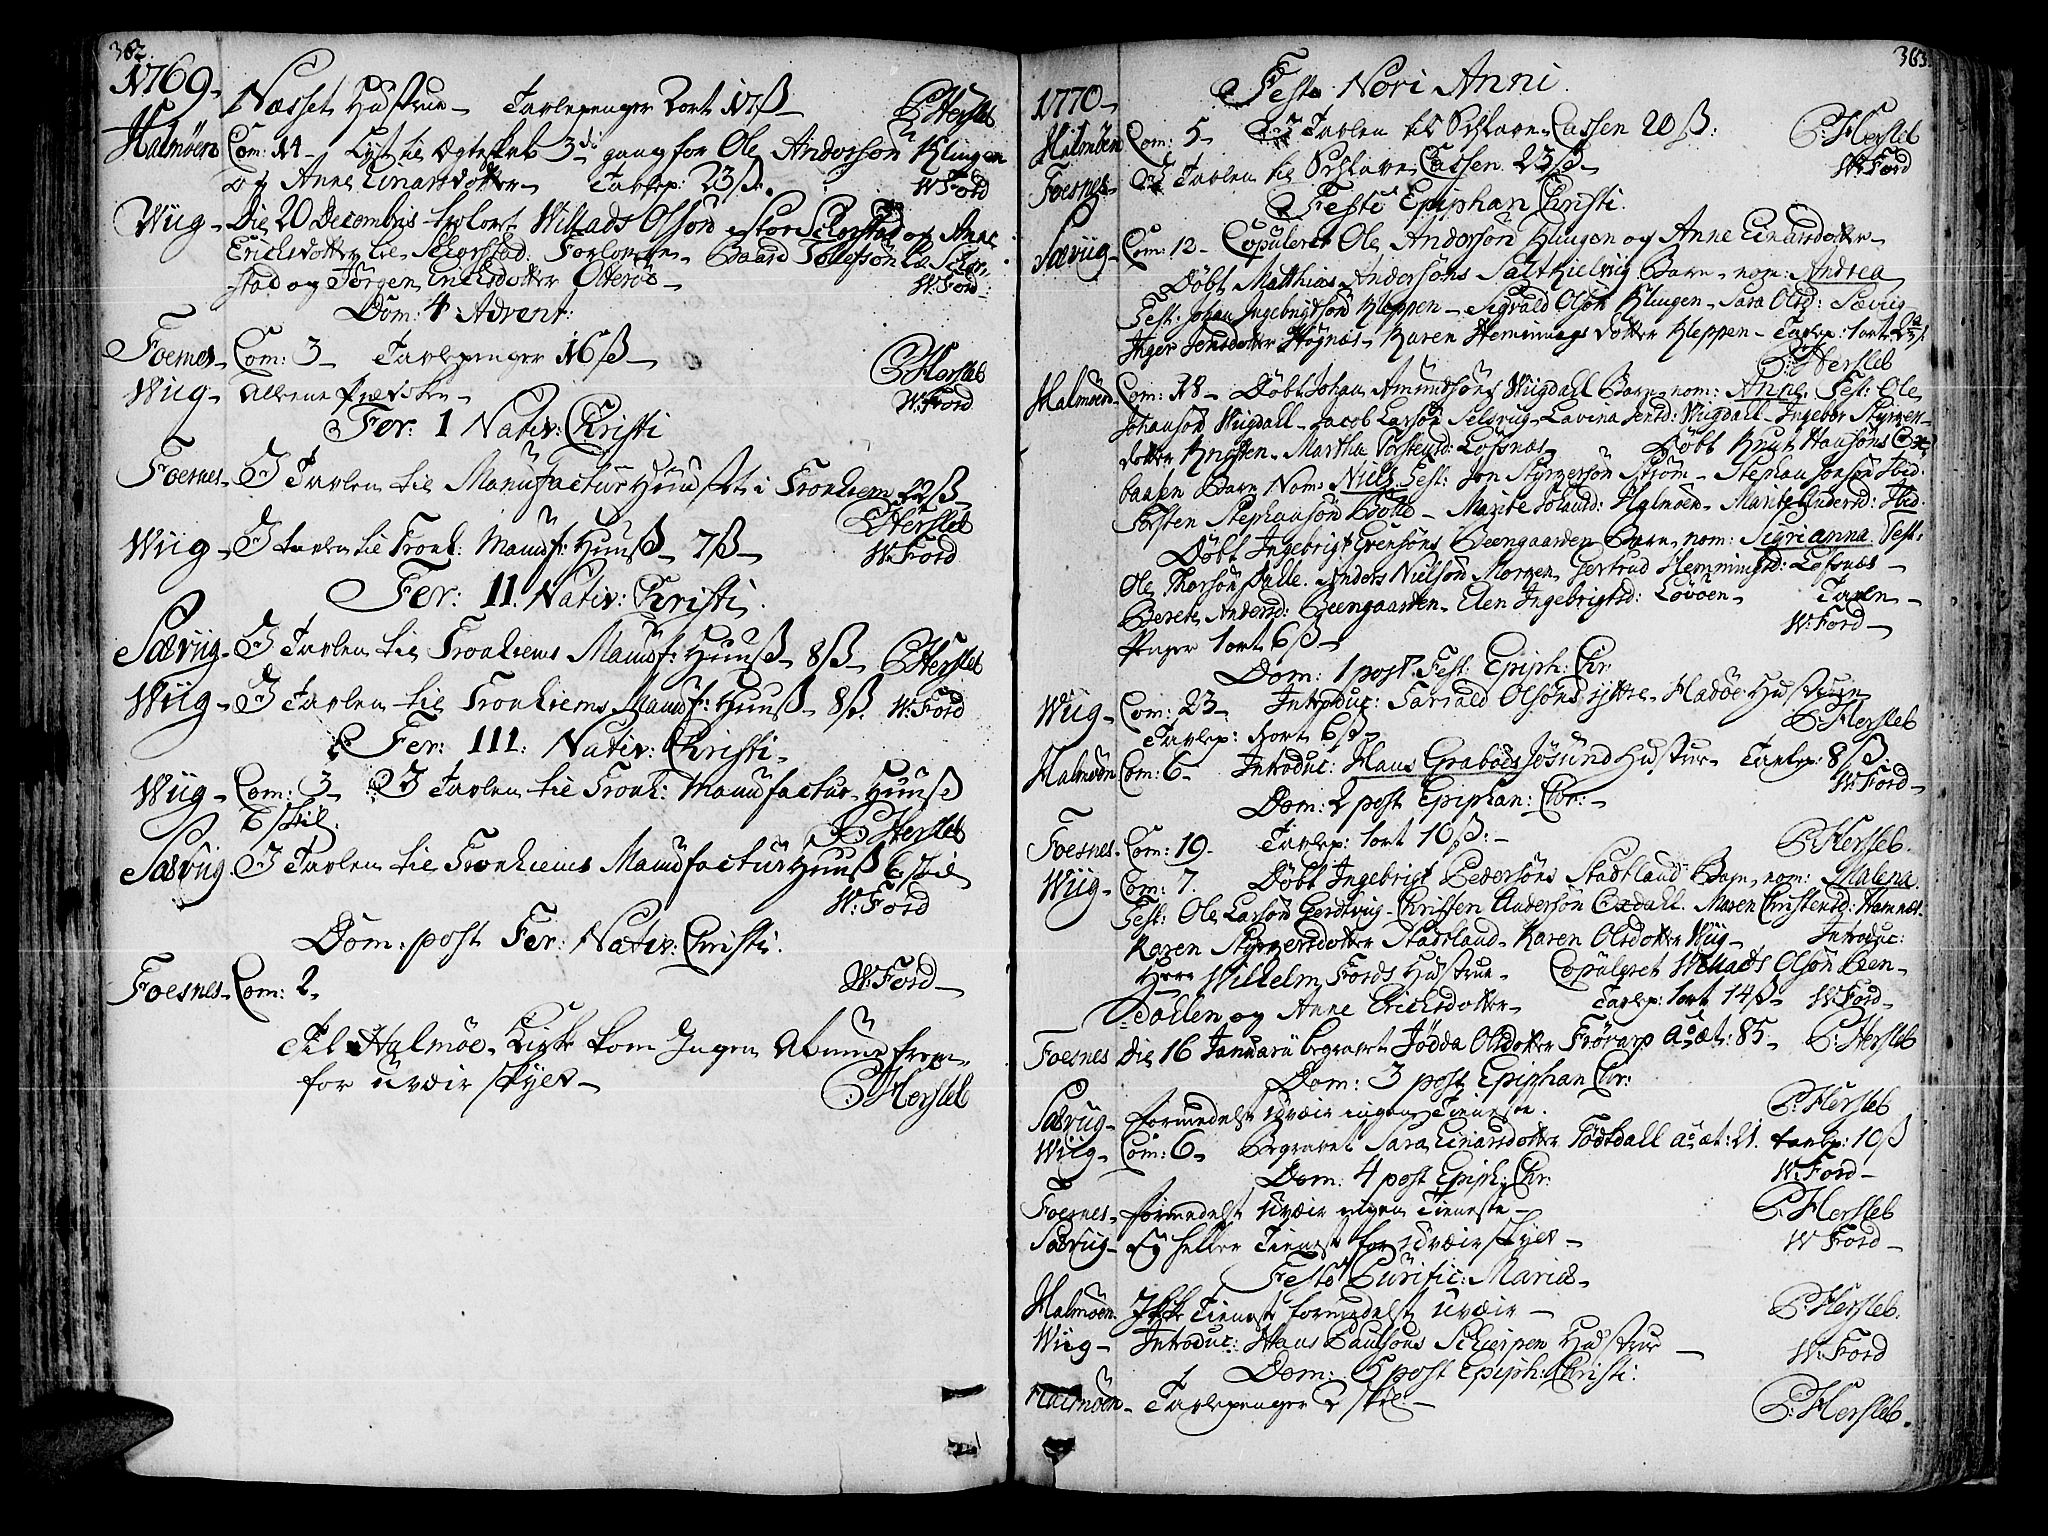 362.
1769-
Næsset Hustrue- Tavlepenger 2ort 17ß- P: Hersleb
Halmöen Com: 14- Lyst til Ægteskab 3di gang for Ole Anderson Klingen
og Anne Einarsdotter- Tavlep: 23ß. W:Ford
Wiig- Die 20 Decembris trolovt Willads Olson Schorstad og Anne
Ericksdotter Schorstad. Forlovere- Baard Tollefson
stad og Jörgen Erichsdotter Otteröe- W:Ford-
Dom: 4 Advent:
Foesnes- Com: 3- Tavlepenger 16ß- P:Hersleb
Wiig- allene Prædiken- W:Ford
Fer: 1 Nativ: Christi
Foesnes- I Tavlen til Manufactur Huuset i Tronhiem 22ß-
P:Hersleb
Wiig- I tavlen til Tronh: Manuf: Huuß- 7ß- W:Ford
Fer: 11. Nativ: Christi.
Sæviig- I Tavlen til Tronhiems Manuf: Huuß- 8ß- P:Hersleb
Wiig- I Tavlen til Tronhiems Manuf: Huuß- 8ß. W:Ford
Fer: 111: Nativ: Christi-
Wiig- Com: 3- I Tavlen til Tronh: Manufactur-Huuß
6 skil: P: Hersleb
Sæviig- I Tavlen til Tronhiems Manufactur Huuß 6 skil
W:Ford
Dom: post Fer: Nativ: Christi.
Foesnes- Com: 2. W:Ford-
Til Halmöe-Kirke kom Ingen Almue frem-
for Uveir skyld- P:Hersleb
363.
1770- Festo Novi Anni.
Halmöen Com: 5- I Tavlen til Schlave-Cassen 20ß: P:Hersleb
Foesnes- I Tavlen til Schlave Cassen 23ß- W:Ford
Festo Epiphan Christi.
Sæviig- Com: 12- Copuleret Ole Anderson Klingen og Anne Einarsdotter-
Döbt Matthias Andersöns Saltkielviig Barn- nom: Andrea
Test: Johan Ingebrigtson Kleppen- Sigvald Olson Klingen- Sara Olsd: Sæviig
Inger Jensdotter Högnæs- Karen Hemmings dotter Kleppen- Tavlep: 1ort
P:Hersleb
Halmöen- Com: 18- Döbt Johan Amundsöns Wiigdall Barn- nom: Anne. Test: Ole
Johanson Wiigdall- Jacob Larson Selsviig- Lavina Jensd: Wiigdall- Ingebor Styrcer-
dotter Knotten- Martha Torstensd: Lofsnæs- Döbt Knut Hansöns
baaen Barn Nom: Niels. Test: Jon Styrcersön Ström- Stephan Jonson Ibid:
Torsten Stephanson Böttle- Marite Halmöen- Marite Andersd: Ibid:
Döbt Ingebrigt Evensöns Beengaarden Barn, nom: Sigrianna. Test:
Ole Thorson Dalle. Anders Nielson Morgen, Gertrud Hemmingsd: Lofsnæs-
Berete Andersd: Beengaarden- Elen Ingebrigtsd: Lovöen- Tavle-
Penger 1ort 6ß- W:Ford-
Dom: 1 post Fest: Epiph: Chr
Wiig- Com: 23- Introduc: Tarald Olsöns ytre-Fladöe Hustrue
Tavlep: 1ort 6ß- P:Hersleb
Halmöen Com: 6- Introduc: Hans Grabous Jösund Hustrue- Tavlep: 8ß.
W:Ford-
Dom: 2 post Epiphan: Chr:-
Foesnes- Com: 19. Tavlep: 1ort 10ß:- P:Hersleb.
Wiig- Com: 7. Döbt Ingebrigt Pedersöns Stadtland Barn- nom: Malena.
Test: Ole Larson Gerdtviig- Christen Anderson Oxdall. Maren Christensd: Hamnæs.
Karen Styrcersdotter Stadtland- Karen Olsdotter Wiig- Introduc:
Herr Wilhelm Fords Hustrue- Copuleret Willads Olson Been-
dallen og Anne Erichsdotter- Tavlep: 1ort 14ß- W:Ford-
Foesnes Die 16 Januarii begravet Jödda Olsdotter Frörarp aoæt: 85- P:Hersleb
Dom: 3 post Epiphan Chr:
Sæviig- formedelst Uveir ingen Tieneste. P:Hersleb
Wiig- Com: 6- Begravet Sara Einarsdotter Födtdall aoæt: 21. tavlep: 10ß
W:Ford-
Dom: 4 post Epiph: Chr:
Foesnes- formedelst Uveir ingen Tieneste- P:Hersleb
Sæviig- Ey heller Tieneste for Uveir skyld- W Ford-
Festo Purific: Mariæ-
Halmöen Ikke Tieneste formedelst Uveir- P:Hersleb.
Wiig- Introduc: Hans Paulsöns Schierpen Hustrue- W:Ford
Dom: 5 post Epiph: Christi:
Halmöen- Tavlepenger 2 skil:- P:Hersleb.